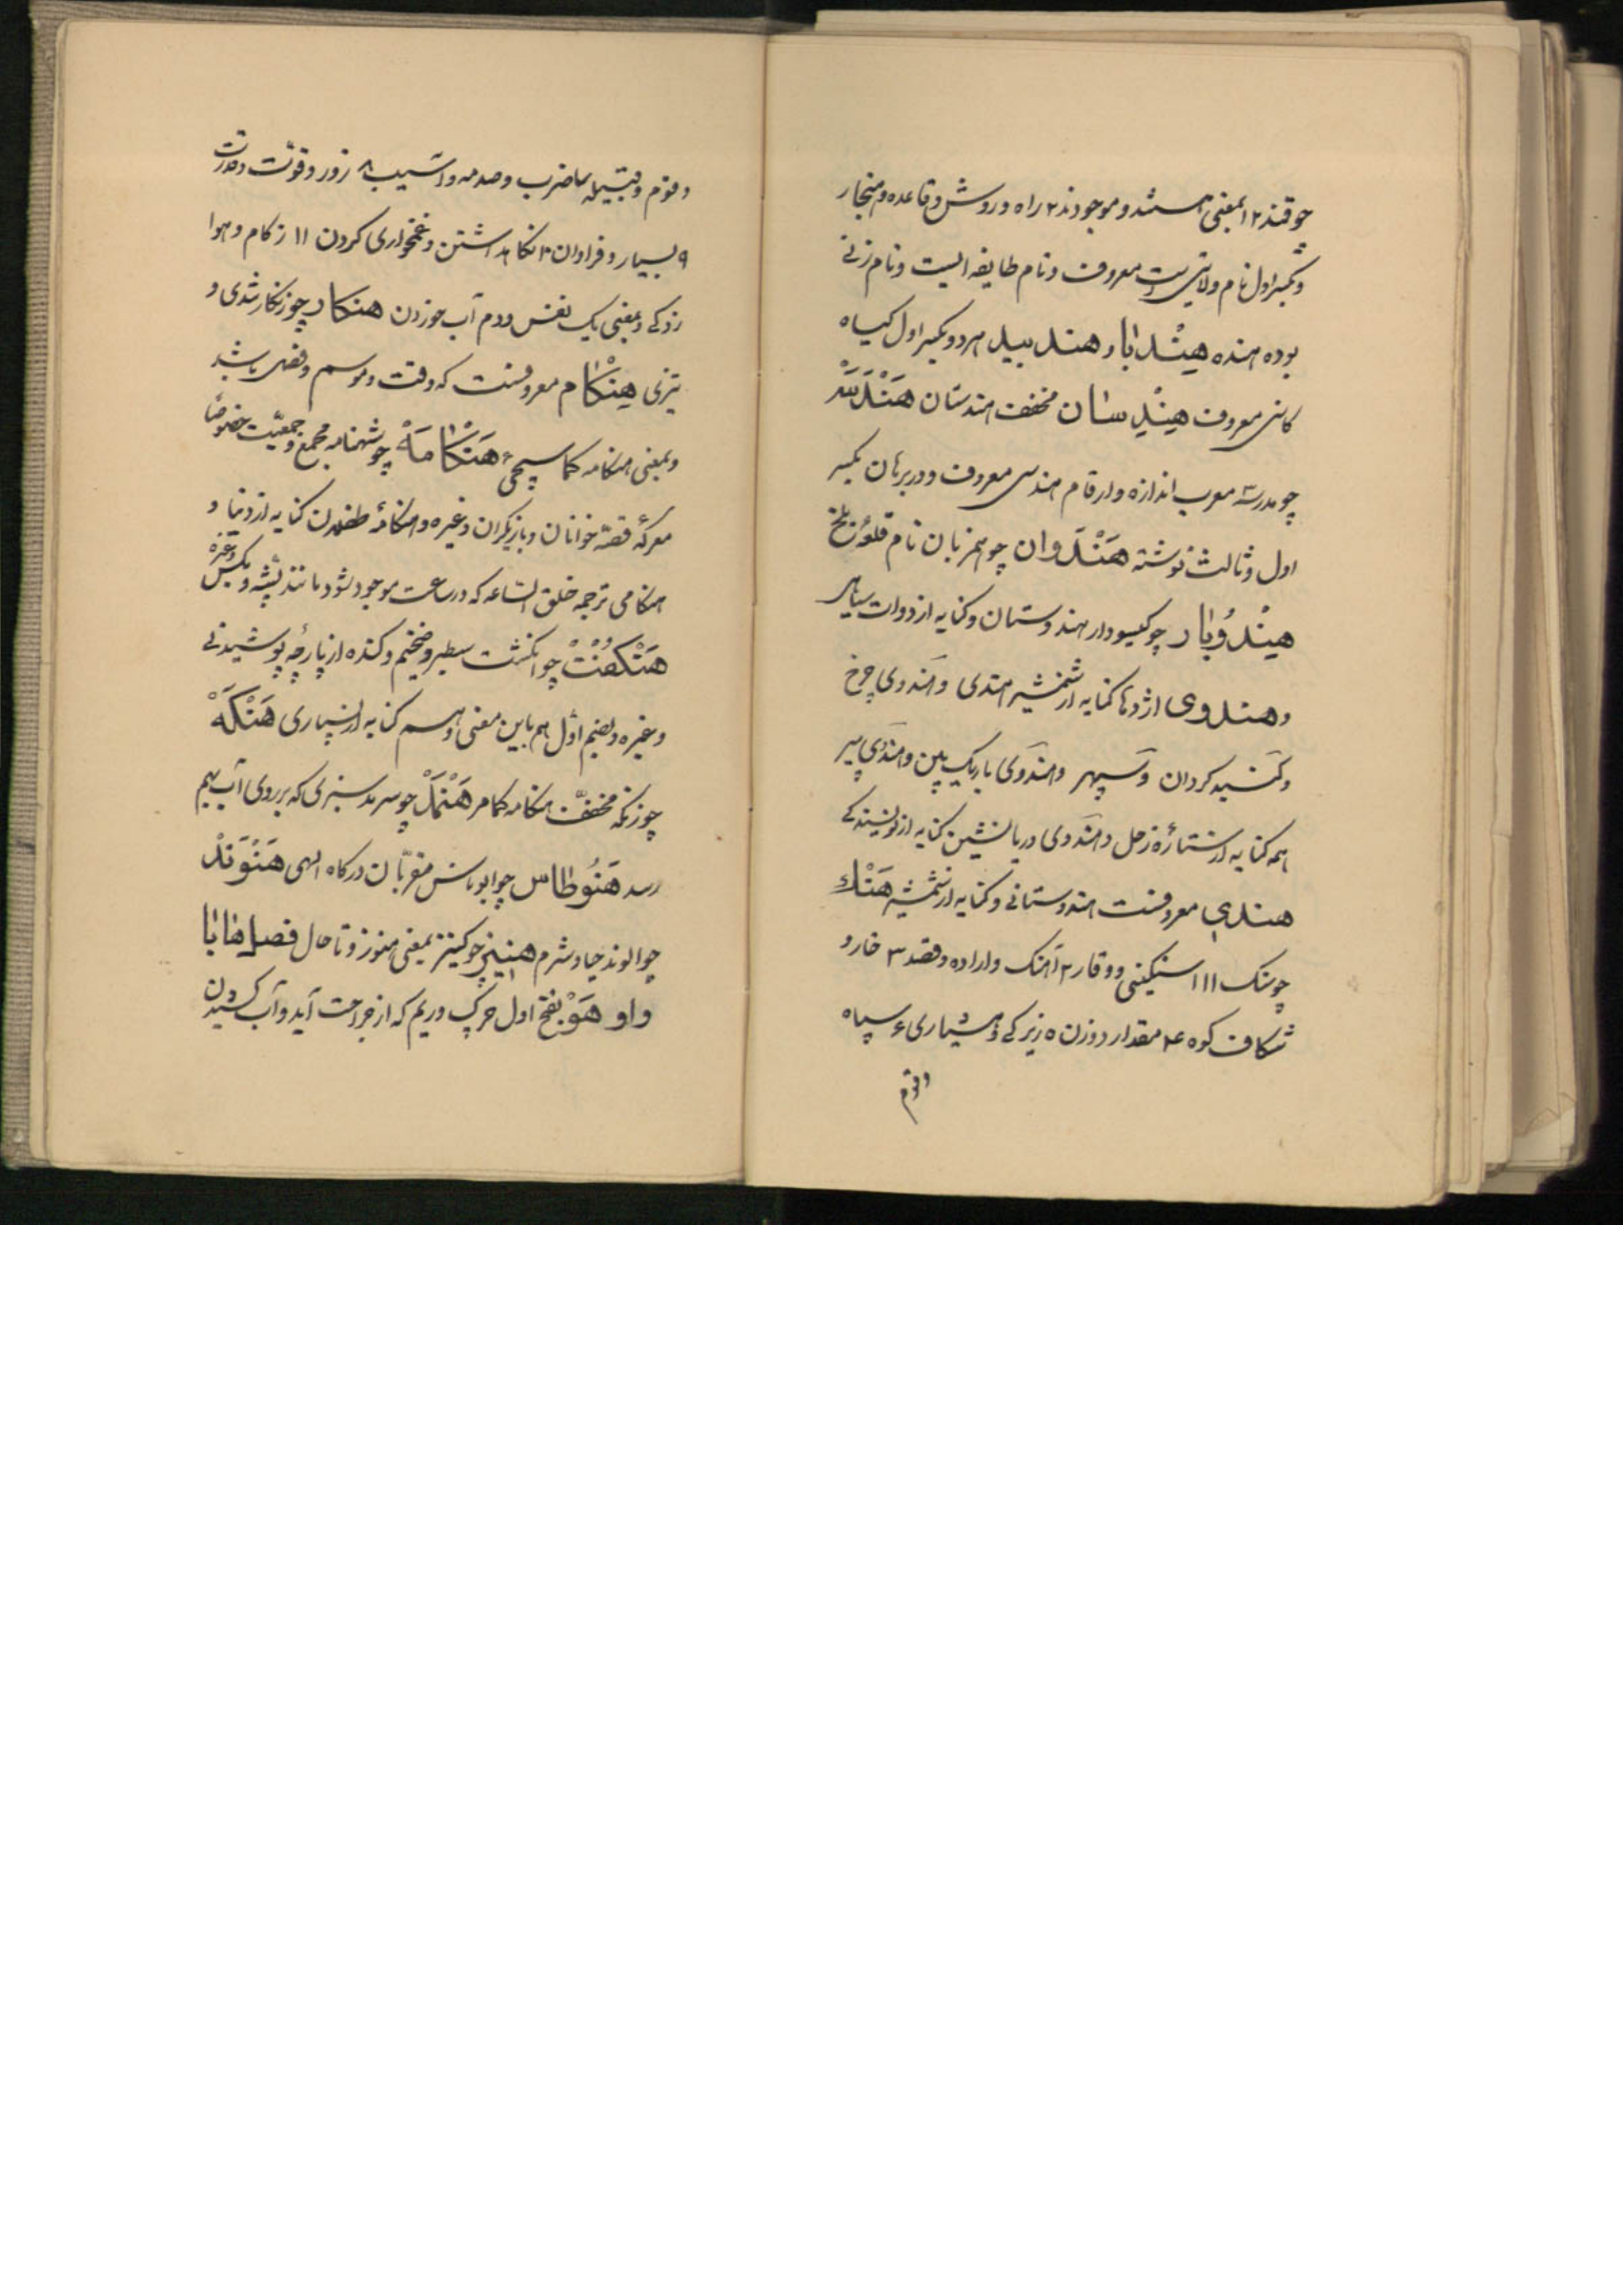 چو قند ۱ بمعنی هستند و موجودند ۲ راه و روش و قاعده و هنجار
و بکسر اول نام ولایتی است معروف و نام طایفه ایست و نام زنی
بوده هنده هِنْدبا و هندبید هر دو بکسر اول گیاه
کاسنی معروف هِنْدِستان مخفف هندستان هَنْدَسَه
چو مدرسه معرب اندازه و ارقام هندسی معروف و در برهان بکسر
اول و ثالث نوشته هَنْدَوان چو همزبان نام قلعهٔ بلخ
هِنْدُوبار چو کیسودار هندوستان و کنایه از دوات سیاهی
و هندوی اژدها کنایه از شمشیر هندی و هندوی چرخ
و گنبد کردان و سپهر و هندوی باریک بین و هندوی پیر
همه کنایه از ستارهٔ زحل و هندوی دریا نشین کنایه از نویسندکی
هندی معروفست هندوستانی و کنایه از شمشیر هَنْك
چو سنک ۱۱ سنکینی و وقار ۲ آهنک و اراده و قصد ۳ غار و
شکاف کوه ۴ مقدار و وزن ۵ زیرکی و هشیاری ۶ سپاه
و قوم
و قوم و قبیله ۷ ضرب و صدمه و آسیب ۸ زور و قوّت و قدرت
۹ بسیار و فراوان ۱۰ نکاهداشتن و غمخواری کردن ۱۱ زکام و هوا
زدکی و بمعنی یک نفس و دم آب خوردن هنکار چو زنکار تندی و
تیزی هِنْکام معروفست که وقت و موسم و فصل باشد
و بمعنی هنکامه کما سیجیٔ هَنْکامَهْ چو شهنامه مجمع و جمعیّت خصوصًا
معرکهٔ قصّه خوانان و بازیکران و غیره و هنکامهٔ طفلان کنایه از دنیا و
هنکامی ترجمه خلق الساعه که در ساعت موجود شود مانند پشه و مکس و غیره
هَنْکُفْتْ چو انکشت سطبر و ضخیم و کنده از پارچهٔ پوشیدنی
و غیره و بضم اول هم باین معنی و هم کنایه از بسیاری هَنْکَهْ
چو زنکه مخفّف هنکامه کما مر هَنْمَدْ چو سرمد سبزی که بر روی آب بهم
رسد هَنُوطاس چو ابوناس مقرّبان درکاه الهی هَنْوَنْدْ
چو الوند حیا و شرم هنیز چو کنیز بمعنی هنوز و تا حال فصل ها با
واو هَوْ بفتح اول چرک و ریم که از جراحت آید و آب کشیدن